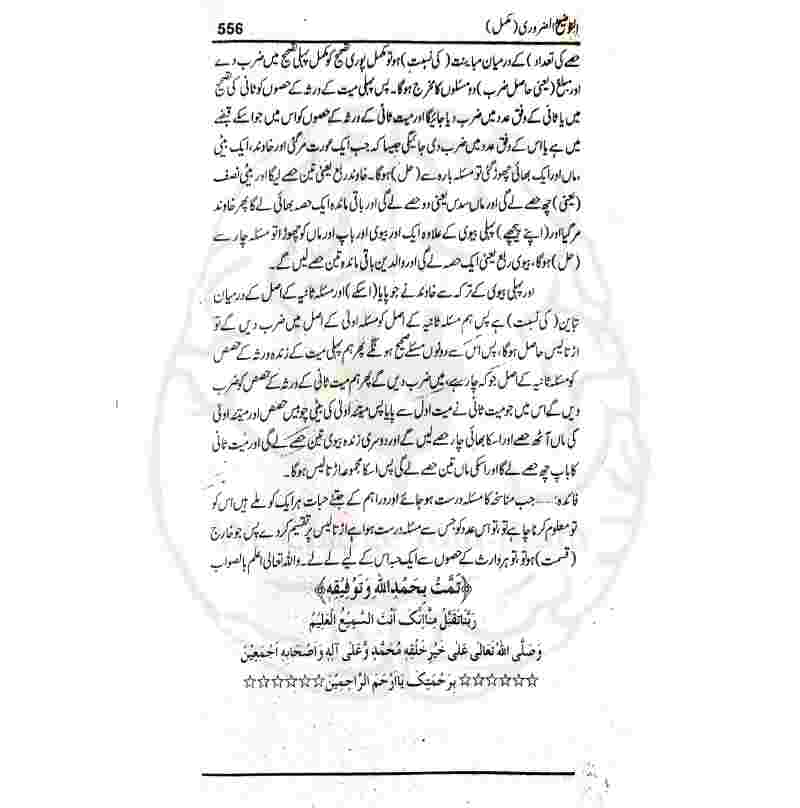 التوضیح الضروری (مکمل) 556
حصے کی تعداد) کے درمیان مباینت (کی نسبت) ہو تو مکمل پوری تصحیح کو مکمل پہلی تصحیح میں ضرب دے
اور مبلغ (یعنی حاصل ضرب) دو مسئلوں کا مخرج ہوگا۔ پس پہلی میت کے ورثہ کے حصوں کو ثانی کی تصحیح
میں یا ثانی کے وفق عدد میں ضرب دیا جائیگا اور میت ثانی کے ورثہ کے حصوں کو اس میں جو اسکے قبضے
میں ہے یا اس کے وفق عدد میں ضرب دی جائیگی جیسا کہ جب ایک عورت مر گئی اور خاوند، ایک بیٹی
،ماں اور ایک بھائی چھوڑ گئی تو مسئلہ بارہ سے (حل) ہوگا۔ خاوند ربع یعنی تین حصے لیگا اور بیٹی نصف
(یعنی) چھ حصے لے گی اور ماں سدس یعنی دو حصے لے گی اور باقی ماندہ ایک حصہ بھائی لے گا پھر خاوند
مر گیا اور (اپنے پیچھے) پہلی بیوی کے علاوہ ایک اور بیوی اور باپ اور ماں کو چھوڑا تو مسئلہ چار سے
(حل) ہوگا، بیوی ربع یعنی ایک حصہ لے گی اور والدین باقی ماندہ تین حصے لیں گے۔
اور پہلی بیوی کے ترکہ سے خاوند نے جو پایا (اسکے) اور مسئلہ ثانیہ کے اصل کے درمیان
تباین (کی نسبت) ہے پس ہم مسئلہ ثانیہ کے اصل کو مسئلہ اولیٰ کے اصل میں ضرب دیں گے تو
اڑتالیس حاصل ہوگا، پس اس سے دونوں مسئلے صحیح ہونگے پھر ہم پہلی میت کے زندہ ورثہ کے حصص
کو مسئلہ ثانیہ کے اصل جو کہ چار ہے، میں ضرب دیں گے پھر ہم میت ثانی کے ورثہ کے حصص کو ضرب
دیں گے اس میں جو میت ثانی نے میت اول سے پایا پس میتہ اولیٰ کی بیٹی چوبیس حصص اور میتہ اولیٰ
کی ماں آٹھ حصے اور اسکا بھائی چار حصے لیں گے اور دوسری زندہ بیوی تین حصے لے گی اور میت ثانی
کا باپ چھ حصے لے گا اور اسکی ماں تین حصے لے گی پس اسکا مجموعہ اڑتالیس ہوگا۔
فائدہ:..... جب مناسخہ کا مسئلہ درست ہو جائے اور دراہم کے جتنے حبات ہر ایک کو ملے ہیں اس کو
تو معلوم کرنا چاہے تو، تو اس عدد کو جس سے مسئلہ درست ہوا ہے اڑتالیس پر تقسیم کر دے پس جو خارج
(قسمت) ہو تو، تو ہر وارث کے حصوں سے ایک حبہ اس کے لیے لے لے۔ واللہ تعالیٰ اعلم بالصواب
﴿تَمَّتْ بِحَمْدِ اللّٰهِ وَتَوْفِيْقِهٖ﴾
رَبَّنَا تَقَبَّلْ مِنَّا اِنَّکَ اَنْتَ السَّمِیْعُ الْعَلِیْمُ
وَصَلَّی اللّٰهُ تَعَالٰی عَلٰی خَیْرِ خَلْقِهٖ مُحَمَّدٍ وَّعَلٰی آلِهٖ وَاَصْحَابِهٖ اَجْمَعِیْنَ
☆☆☆☆☆☆ بِرَحْمَتِکَ یَا اَرْحَمَ الرَّاحِمِیْنَ ☆☆☆☆☆☆